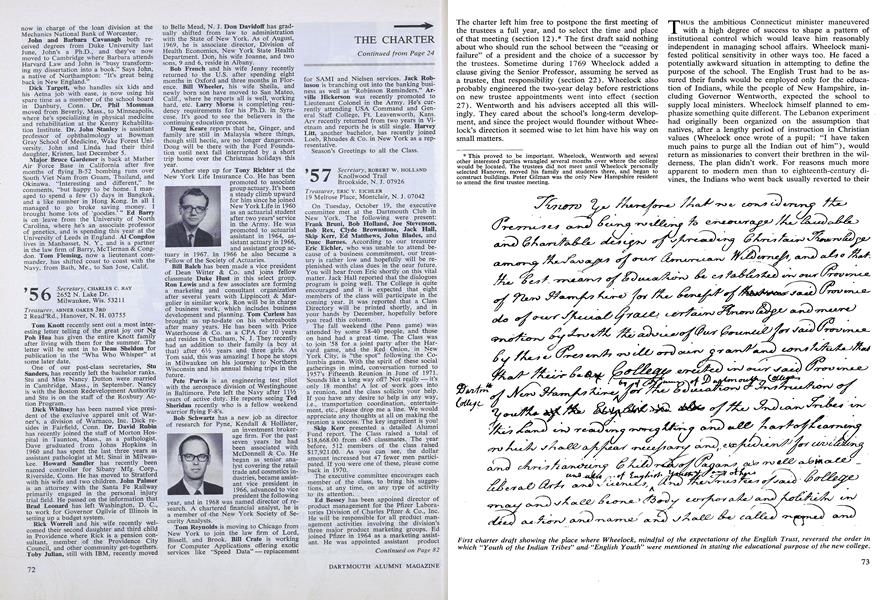 now in charge of the loan division at the
Mechanics National Bank of Worcester.
John and Barbara Cavanagh both re-
ceived degrees from Duke University last
June, John's a Ph.D., and they've now
moved to Cambridge where Barbara attends
Harvard Law and John is "busy transform-
ing my dissertation into a book." Says John,
a native of Northampton: "It's great being
back in New England."
Dick Targett, who handles six kids and
his Aetna job with ease, is now using his
spare time as a member of the school board
in Danbury, Conn. Dr. Phil Mossman
moved from Beverly, Mass., to Milwaukee,
where he's specializing in physical medicine
and rehabilitation at the Kenny Rehabilita-
tion Institute. Dr. John Stanley is assistant
professor of ophthalmology at Bowman
Gray School of Medicine, Wake Forest Uni-
versity. John and Linda had their third
daughter, Kristen, last December 5.
Major Bruce Gardner is back at Mather
Air Force Base in California after five
months of flying B-52 bombing runs over
South Viet Nam from Guam, Thailand, and
Okinawa. "Interesting and different," he
comments, "but happy to be home. I man-
aged to spend a few (3) days in Bangkok,
and a like number in Hong Kong. In all I
managed to go broke saving money. I
brought home lots of 'goodies.'" Ed Barry
is on leave from the University of North
Carolina, where he's an associate professor
of genetics, and is spending this year at the
University of Leeds in England. Al Congdon
lives in Manhasset, N. Y., and is a partner
in the law firm of Barry, McTiernan & Cong-
don. Tom Fleming, now a lieutenant com-
mander, shifted from coast to coast with the
Navy, from Bath, Me., to San Jose, Calif.
'56
Secretary, CHARLES C. RAY
2652 N. Lake Dr.
Milwaukee, Wis. 53211
Treasurer, MANER OAKES 3RD
2 Read'Rd., Hanover, N. H. 03755
Tom Knott recently sent out a most inter-
esting letter telling of the great joy our Ng
Poh Hua has given the entire Knott family
after living with them for the summer. The
letter will be sent in to Dean Sheldon for
publication in the "Wha Who Whisper" at
some later date.
One of our past-class secretaries, Stu
Sanders, has recently left the bachelor ranks.
Stu and Miss Nancy Dutton were married
in Cambridge, Mass., in September. Nancy
is with the Boston Redevelopment Authority
and Stu is on the staff of the Roxbury Ac-
tion Program.
Dick Whitney has been named vice presi-
dent of the exclusive apparel unit of War-
ner's, a division of Warnaco, Inc. Dick re-
sides in Fairfield, Conn. Dr. David Rubin
has recently joined the staff of Morton Hos-
pital in Taunton, Mass., as a pathologist.
Dave graduated from Johns Hopkins in
1960 and has spent the last three years as
assistant pathologist at Mt. Sinai in Milwau-
kee. Howard Sandler has recently been
named controller for Sibany Mfg. Corp.,
Riverside, Conn. He has moved to Stratford
with his wife and two children. John Palmer
is an attorney with the Santa Fe Railway
primarily engaged in the personal injury
trial field. He passed on the information that
Brad Leonard has left Washington, D. C.,
to work for Governor Ogilvie of Illinois in
setting up a budget system.
Rick Worrell and his wife recently wel-
comed their second daughter and third child
in Providence where Rick is a pension con-
sultant, member of the Providence City
Council, and other community get-togethers.
Toby Julian, still with IBM, recently moved
72
to Belle Mead, N. J. Don Davidoff has grad-
ually shifted from law to administration
with the State of New York. As of August,
1969, he is associate director, Division of
Administration, for New York State Health
Department. Don, his wife Joanne, and two
sons, 9 and 6, reside in Albany.
Bob French and his family have recently
returned to the U.S. after spending eight
months in Oxford and three months in Flor-
ence. Bill Wheeler, his wife Sheila, and
newly born son have moved to San Mateo,
Calif., where he reports all is well, working
hard, etc. Larry Morse is completing resi-
dence requirements for his Ph.D. at Syra-
cuse. It's good to see the believers in the
continuing education process.
Doug Keare reports that he, Ginger, and
family are still in Malaysia where things,
though still hectic, are no longer dangerous.
Doug will be there with the Ford Founda-
tion until next fall interrupted by a short
trip home over the Christmas holidays this
year.
Another step up for Tony Richter at the
New York Life Insurance Co. He has been
promoted to associate
group actuary. It's been
a steady climb upward
for him since he joined
New York Life in 1960
as an actuarial student
after two years' service
in the Army. He was
promoted to actuarial
assistant in 1964, as-
sistant actuary in 1966,
and assistant group ac-
tuary in 1967. In 1965 he also became a
Fellow of the Society of Actuaries.
Bill Balch has been made a vice president
of Dean Witter & Co. and joins fellow
classmate Duke Hust in this select group.
Ron Lewis and a few associates are forming
a marketing and consulting organization
after several years with Lippincott & Mar-
gulier in similar work. Ron will be in charge
of business work, which includes business
development and planning. Tom Curless has
brought us up-to-date on his whereabouts
after many years. He has been with Price
Waterhouse & Co. as a CPA for 10 years
and resides in Chatham, N. J. They recently
had an addition to their family (a boy at
that) after 6½ years and three girls. As
Tom said, this was amazing! I hope he stops
in Milwaukee on his next foray to Northern
Wisconsin and his annual fishing trips in the
future.
Pete Purvis is an engineering test pilot
with the aerospace division of Westinghouse
in Baltimore. Pete left the Navy after 11½
years of active duty. He reports seeing Ted
Sheridan recently who is a fellow weekend
warrior flying F-8's.
Bob Schwartz has a new job as director
of research for Pyne, Kendall & Hollister,
an investment broker-
age firm. For the past
seven years he had
been associated with
McDonnell & Co. He
began as senior ana-
lyst covering the retail
trade and cosmetics in-
dustries, became assist-
ant vice president in
1966, advanced to vice
president the following
year, and in 1968 was named director of re-
search. A chartered financial analyst, he is
a member of the New York Society of Se-
curity Analysts.
Tom Reynolds is moving to Chicago from
New York to join the law firm of Lord,
Bissell, and Brook. Bill Crate is working
for Computer Applications offering exotic
services like "Speed Data" — replacement
THE CHARTER
Continued from Page 24
for SAMI and Nielsen services. Jack Rob-
inson is branching out into the banking busi-
ness as well as "Robinson Reminders." Ar-
nie Hickerson was recently promoted to
Lieutenant Colonel in the Army. He's cur-
rently attending USA Command and Gen-
eral Staff College, Ft. Leavenworth, Kans.
Arv recently returned from two years in Vi-
etnam and reports he is still single. Harvey
Litt, another bachelor, has recently joined
Loeb, Rhoades & Co. in New York as a rep-
resentative.
Season's Greetings to all the Class.
'57
Secretary, ROBERT W. HOLLAND
Knollwood Trail
Brookside, N. J. 07926
Treasurer, ERIC V. EICHLER
19 Melrose Place, Montclair, N. J. 07042
On Tuesday, October 19, the executive
committee met at the Dartmouth Club in
New York. The following were present:
Frank Bruni, Bob Holland, Joe Stevenson,
Bob Rex, Clyde Brownstone, Jack Hall,
Skip Kerr, Ed Matthews, John Blades, and
Dune Barnes. According to our treasurer
Eric Eichler, who was unable to attend be-
cause of a business commitment, our treas-
ury is rather low and hopefully will be re-
plenished with class dues in the near future.
You will hear from Eric shortly on this vital
matter. Jack Hall reported that the dialogues
program is going well. The College is quite
encouraged and it is expected that eight
members of the class will participate in the
coming year. It was reported that a Class
Directory will be printed shortly, and in
your hands by December, hopefully before
you read this column.
The fall weekend (the Penn game) was
attended by some 38-40 people, and those
on hand had a great time. The Class was
to join '58 for a joint party after the Har-
vard game, and the Red Onion, in New
York City, is "the spot" following the Co-
lumbia game. With the spirit of these social
gatherings in mind, conversation turned to
1957's Fifteenth Reunion in June of 1971.
Sounds like a long way off? Not really — it's
only 18 months! A lot of work goes into
these things and the class solicits your help.
If you have any desire to help in any way,
i.e., transportation, coordination, entertain-
ment, etc., please drop me a line. We would
appreciate any thoughts at all on making the
reunion a success. The key ingredient is you!
Skip Kerr presented a detailed Alumni
Fund report. The Class raised a total of
$18,668.00 from 465 classmates. The year
before, 512 members of the class raised
$17,921.00. As you can see, the dollar
amount increased but 47 fewer men partici-
pated. If you were one of these, please come
back in 1970.
The executive committee encourages each
member of the class, to bring his sugges-
tions, at any time, on any type of activity
to its attention.
Ed Bessey has been appointed director of
product management for the Pfizer Labora-
tories Division of Charles Pfizer & Co., Inc.
He will be responsible for all product man-
agement activities involving the division's
seven major product marketing groups. Ed
joined Pfizer in 1964 as a marketing assist-
ant. He was appointed assistant product
Continued on Page 82
DARTMOUTH ALUMNI MAGAZINE
The charter left him free to postpone the first meeting of
the trustees a full year, and to select the time and place
of that meeting (section 12).* The first draft said nothing
about who should run the school between the "ceasing or
failure" of a president and the choice of a successor by
the trustees. Sometime during 1769 Wheelock added a
clause giving the Senior Professor, assuming he served as
a trustee, that responsibility (section 22). Wheelock also
probably engineered the two-year delay before restrictions
on new trustee appointments went into effect (section
27). Wentworth and his advisers accepted all this will-
ingly. They cared about the school's long-term develop-
ment, and since the project would flounder without Whee-
lock's direction it seemed wise to let him have his way on
small matters.
* This proved to be important. Wheelock, Wentworth and several
other interested parties wrangled several months over where the college
would be located. The trustees did not meet until Wheelock personally
selected Hanover, moved his family and students there, and began to
construct buildings. Peter Gilman was the only New Hampshire resident
to attend the first trustee meeting.
THUS the ambitious Connecticut minister maneuvered
with a high degree of success to shape a pattern of
institutional control which would leave him reasonably
independent in managing school affairs. Wheelock mani-
fested political sensitivity in other ways too. He faced a
potentially awkward situation in attempting to define the
purpose of the school. The English Trust had to be as-
sured their funds would be employed only for the educa-
tion of Indians, while the people of New Hampshire, in-
cluding Governor Wentworth, expected the school to
supply local ministers. Wheelock himself planned to em-
phasize something quite different. The Lebanon experiment
had originally been organized on the assumption that
natives, after a lengthy period of instruction in Christian
values (Wheelock once wrote of a pupil: "I have taken
much pains to purge all the Indian out of him"), would
return as missionaries to convert their brethren in the wil-
derness. The plan didn't work. For reasons much more
apparent to modern men than to eighteenth century di-
vines, the Indians who went back usually reverted to their
Know Ye therefore that we considering the
Premises and being willing to encourage the laudable
and Charitable design of spreading Christain Knowledge
among the Savages of our American Wilderness, and also that
the best means of Education be established in our Province
of New Hampshire for the benefit of said Province
do of our Special Grace, certain Knowledge and mere
motion by & with the advice of Our Council for said Province
by these Presents will ordain grant and constitute that
that their be a College erected in our said Province
Dartmth College
by the Name of Dartmouth College
of New Hampshire for the Education & Instruction of
Youths of the Indian Tribes in
this Land in reading wrighting and all part of Learning
which shall appear necessary and expedient for civilizing
and christianizing Children of Pagans as well as in all
Liberal Arts and Sciences; and also of English Youth and any others
And the Trustees of said College
may and shall be one Body corporate and politick in
deed action and name and shall be called named and
First charter draft showing the place where Wheelock, mindful of the expectations of the English Trust, reversed the order in
which "Youth of the Indian Tribes" and "English Youth" were mentioned in stating the educational purpose of the new college.
73